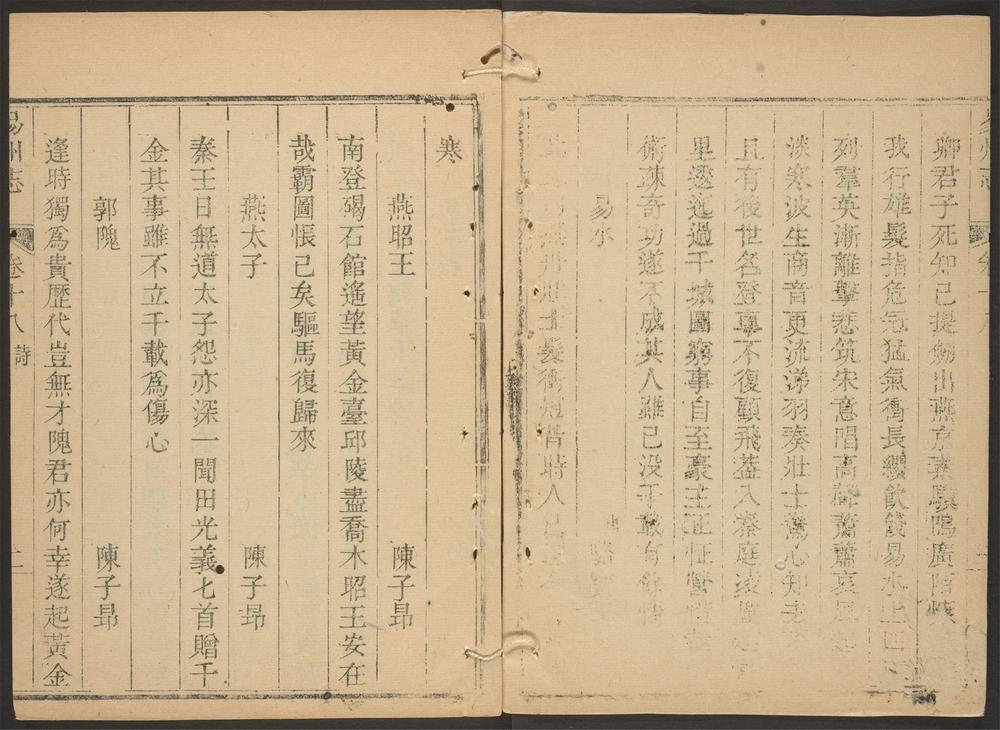 卿君子死知己提劒出燕京素驥鳴廣陌
我行雄髮指危冠猛氣衝長纓飲餞易水上四
列羣英漸離擊悲筑宋意唱高聲蕭蕭哀風
淡寒波生商音更流涕羽奏壯士驚心知去
且有後世名登車不復顧飛蓋入秦庭凌
里逶迤過千城圖窮事自至豪主正怔營惜
術疎奇功遂不成其人雖已没千載有餘情
易水
丹壯士髮衝冠昔時人
寒
燕昭王 陳子昻
南登碣石館遙望黃金臺邱陵盡喬木昭王安在
哉霸圖悵已矣驅馬復歸來
燕太子 陳子昻
秦王日無道太子怨亦深一聞田光義匕首贈千
金其事雖不立千載爲傷心
郭隗 陳子昻
逢時獨爲貴歷代豈無才隗君亦何幸遂起黃金
易州志 卷十八 詩 二